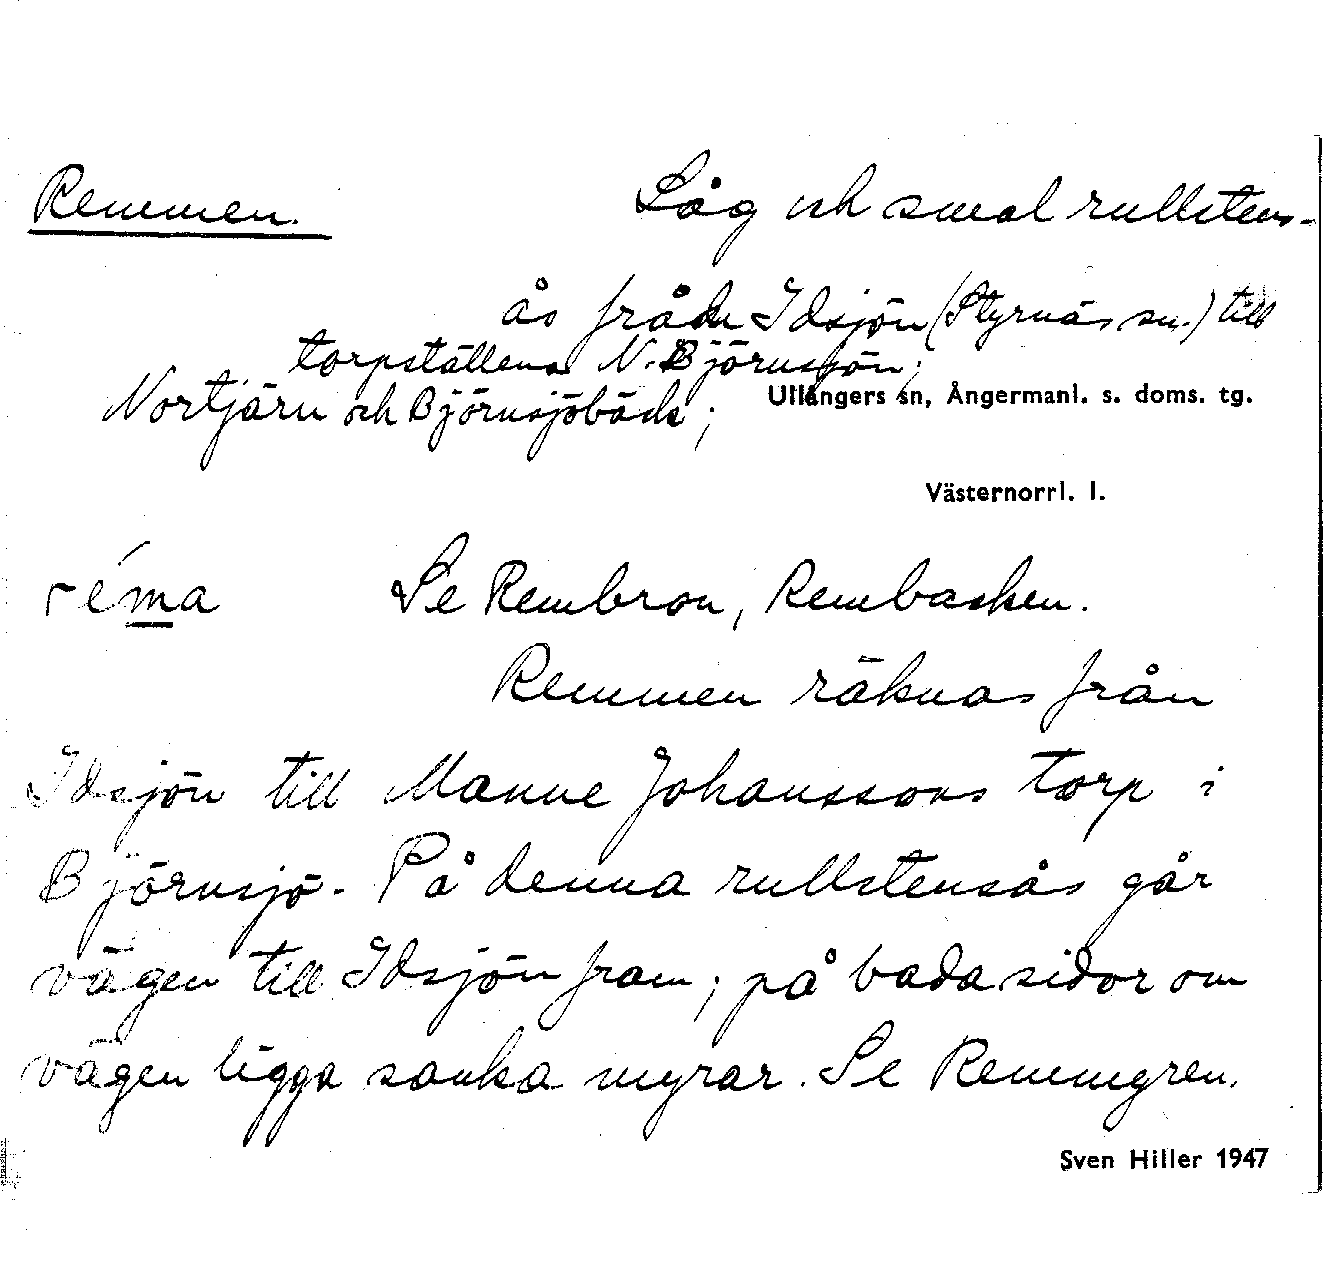 Remmen. Låg och smal rullstens-
ås från Idsjön (Styrnäs sn.) till
torpställena N. Björnsjön,
Nortjärn och Björnsjöbäck;
Ullångers sn, Ångermanl. s. doms. tg.
Västernorrl. l.
réma Se Rembron, Rembacken.
Remmen räknas från
Idsjön till Manne Johanssons torp i
Björnsjö. På denna rullstensås går
vägen till Idsjön fram; på bada sidor om
vägen ligga sanka myrar. Se Remmgren.
Sven Hiller 1947